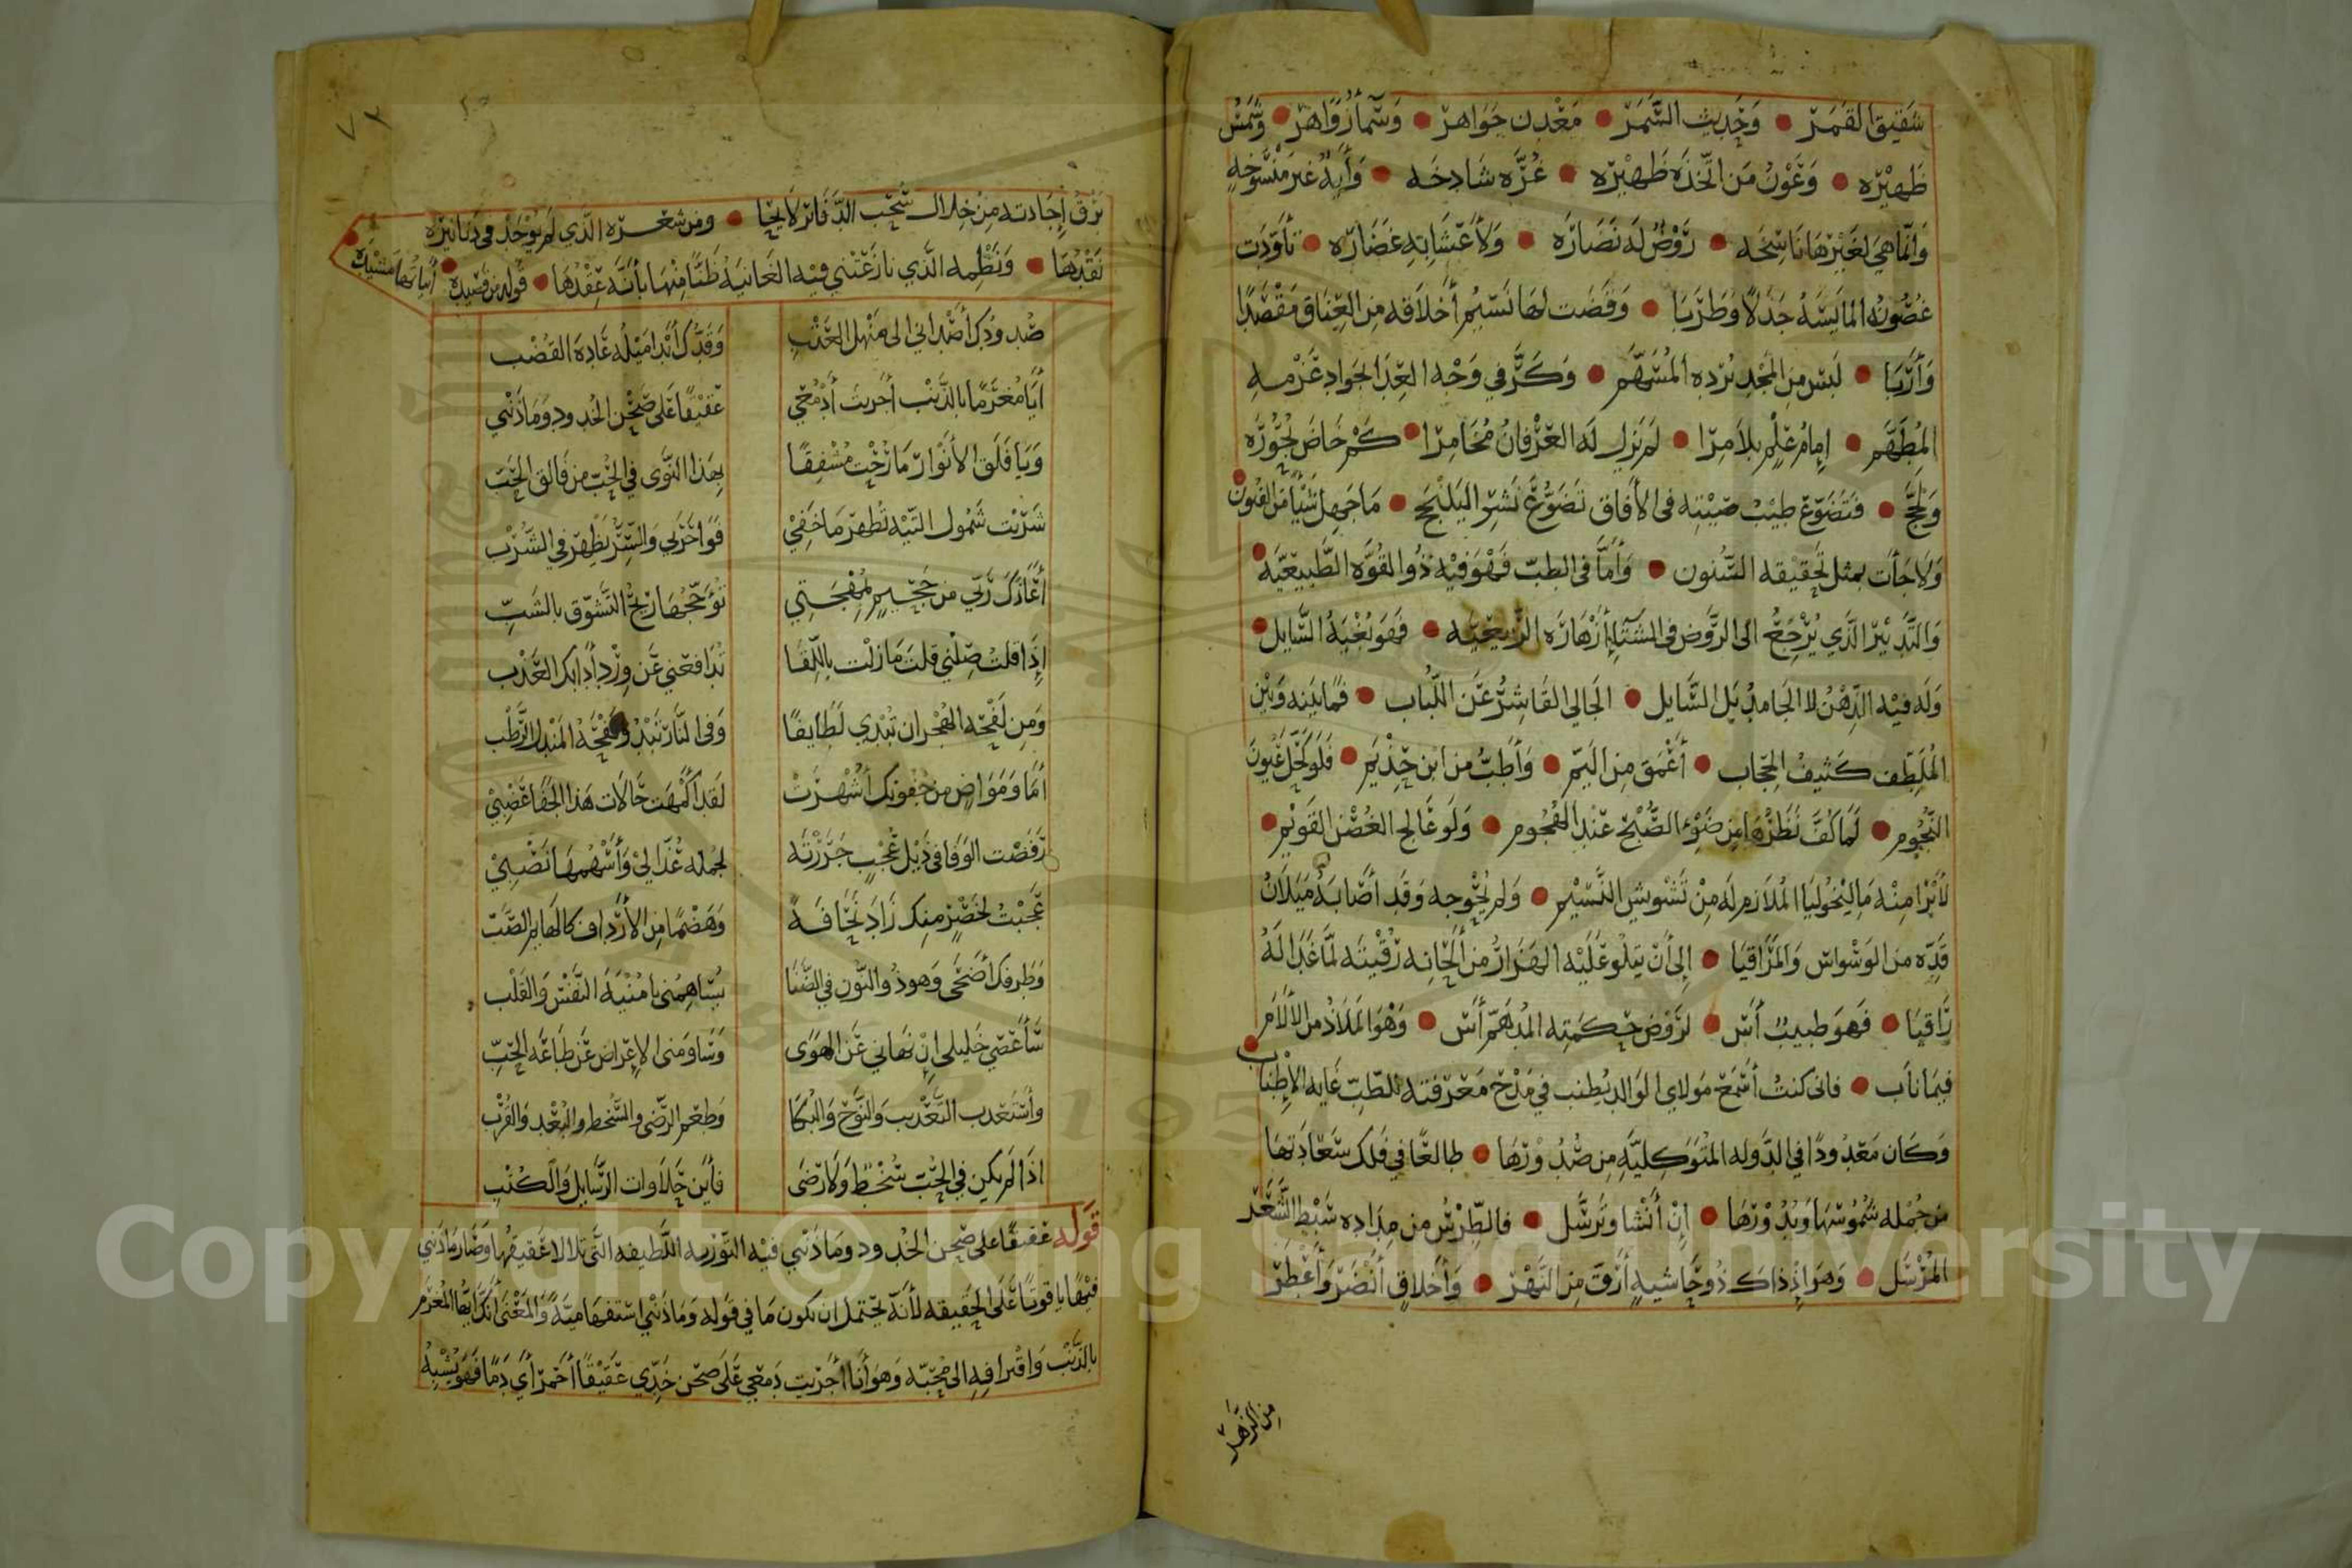 شقيق القمر • وحديث السمر • معدن جواهر • وسما زواهر • وشمس
ظهيره • وعون من اتخذه ظهيره • غره شادخه • وايه غير منسوخه
وانما هي لغيرها ناسخه • روض له نضاره • ولاعشابه غضاره • تاودت
غصونه المايسه جذلا وطربا • وقضت لها نسيم أخلاقه من العناق مقصدا
وأربا • لبس من المجد برده المسهم • وكر في وجه العدا جواد عزمه
المطهم • إمام علم بلا مرا • لم يزل له العرفان مخامرا • كم خاض لجوره
ولج • فتضوع طيب صيته في الآفاق تضوع نشر اليلنجج • ما جهل شيئا من الفنون
ولا جأت بمثل تحقيقه السنون • وأما في الطب فهو فيه ذو القوه الطبيعيه
والتدبير الذي يرجع الى الروض في الشتا أزهاره الربيعيه • فهو بغية السايل
وله فيه الذهن لا الجامد بل السايل • الجالي القاشر عن اللباب • فما بينه وبين
الملطف كثيف الحجاب • أعمق من اليم • وأطب من ابن حذيم • فلو كحل عيون
النجوم • لما كف نظرها من ضوء الصبح عند الهجوم • ولو عالج الغصن القويم
لأبرا منه ماليخوليا الملازم له من تشويش النسيم • ولم يحوجه وقد أصابه ميلان
قده من الوسواس والمراقيا • إلى أن يتلو عليه الهزار من ألحانه رقيته لما غدا له
راقيا • فهو طبيب أس • لروض حكمته المدهم أس • وهو الملاذ من الآلام
فيما ناب • فاني كنت أسمع مولاي الوالد يطنب في مدح معرفته للطب غايه الإطناب
وكان معدودا في الدوله المتوكليه من صدورها • طالعا في فلك سعادتها
من جمله شموسها وبدورها • إن أنشا وترسل • فالطرس من مداده سبط الشعر
المرسل • وهو إذ ذاك ذو حاشيه أرق من النهر • وأخلاق أنضر وأعطر
من الزهر
٧٢
برق إجادته من خلال سحب الدفاتر لايحا • ومن شعره الذي لم يوجد في دنانيره
نقدها • ونظمه الذي نازعتني فيه الغانيه ظنا منها بأنه عقدها • قوله من قصيده أبياتها مشيده
صدودك أصداني الى منهل العذب وقدك أبدا ميله عاده القضب
أيا مغرما بالذنب أجريت أدمعي عقيقا على صحن الخدود وما ذنبي
ويا فلق الأنوار ما زحت مشفقا بهذا النوى في الحب من فالق الحب
شربت شمول التيه تظهر ما خفي فواحربي والسر يظهر في الشرب
أعاذك ربي من جحيم لمهجتي تؤججها ريح التشوق بالشب
إذا قلت صلني قلت ما زلت باللقا تدافعني عن ورد أدابك العذب
ومن لفحه الهجران تبدي لطايفا وفي النار تبدو نفحة المندل الرطب
أما ومواض من جفونك أشهرت لقد أكمهت حالات هذا الجفا عضبي
رفضت الوفا في ذيل عجب جررته لجمله عذالي وأسهمها نصبي
عجبت لخصر منك زاد نحافة وهضما من الأرداف كالهايم الصب
وطرفك أضحى وهو ذو النون في الضنا يساهمني يا منية النفس والقلب
سأعصي خليلي إن نهاني عن الهوى وساومني الإعراض عن طاعه الحب
وأستعذب التعذيب والنوح والبكا وطعم الرضى والسخط والبعد والقرب
اذا لم يكن في الحب سخط ولا رضى فأين حلاوات الرسايل والكتب
قوله عقيقا على صحن الخدود وما ذنبي فيه التوريه اللطيفه التي تلالا عقيقها وصار ما ذنبي
فيها ياقوتا على الحقيقه لأنه يحتمل ان تكون ما في قوله وما ذنبي استفهاميه والمعنى انك ايها المغرم
بالذنب واقترافه الى محبه وهو أنا أجريت دمعي على صحن خدي عقيقا أحمر أي دما فهو يشبه